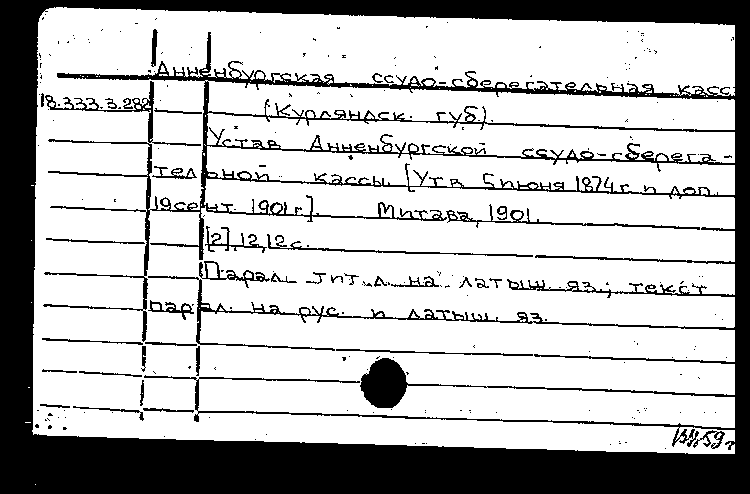 Анненбургская ссудо-сберегательная касс
18.333.3.282
(Курляндск. губ).
Устав Анненбургской ссудо-сберега-
тельной кассы. [Утв. 5 июня 1874 г. и доп.
19 сент. 1901 г]. Митава, 1901.
[2], 12, 12 с.
Парал. тит. л. на латыш. яз.; текст
парал. на рус. и латыш. яз.